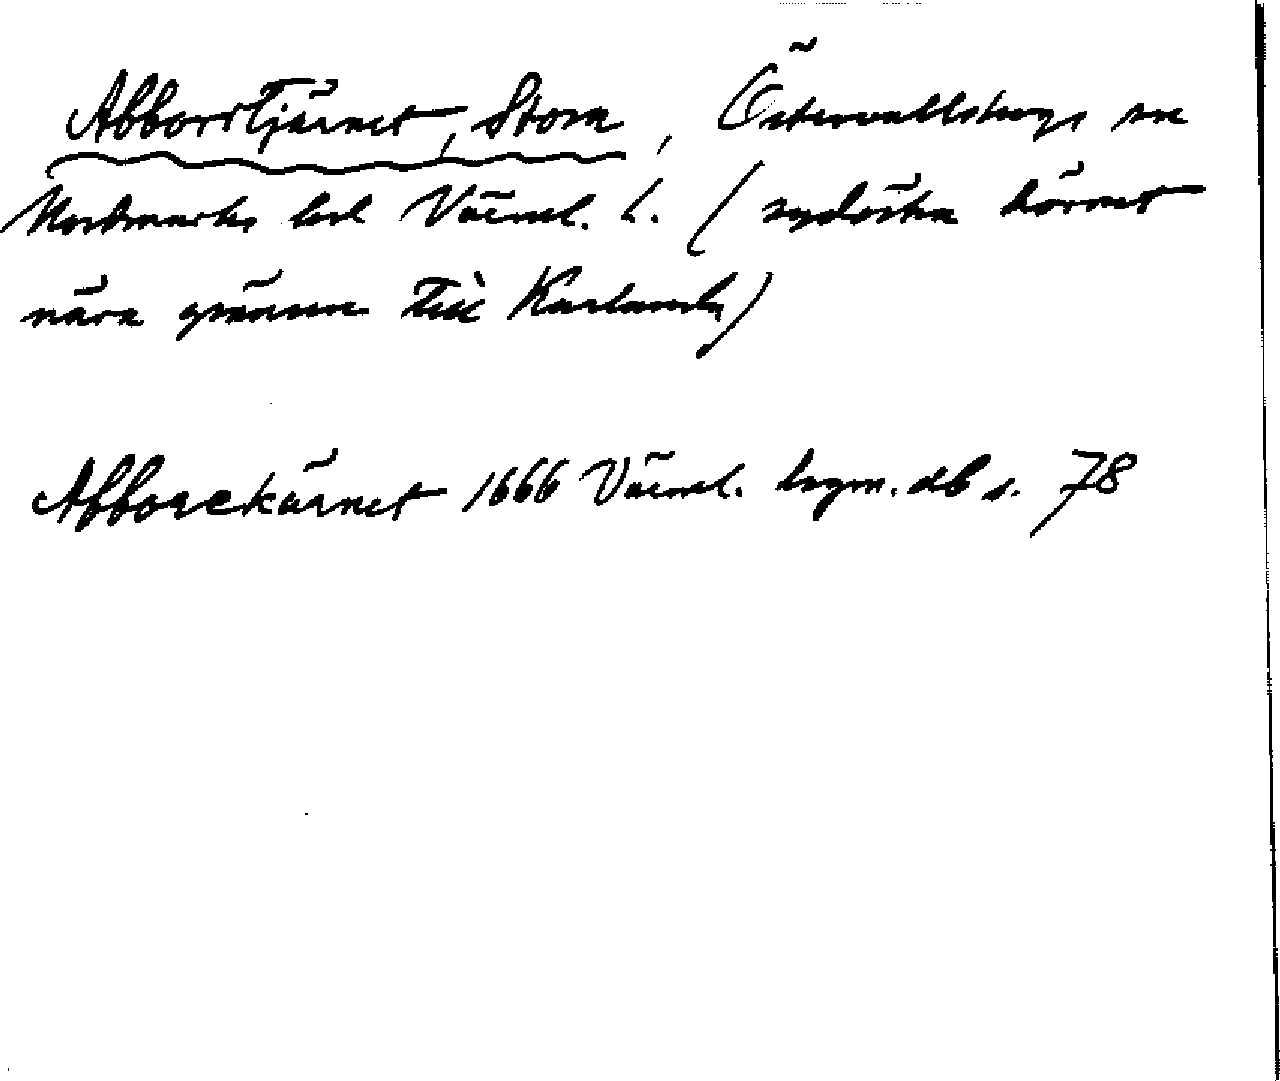 Abborrtjärnet, Stora, Östervallskogs sn
Nordmarks hd Värml. l. (sydöstra hörnet
nära gränsen till Karlanda)
Abborekärnet 1666 Värml. hrgm. db s. 78